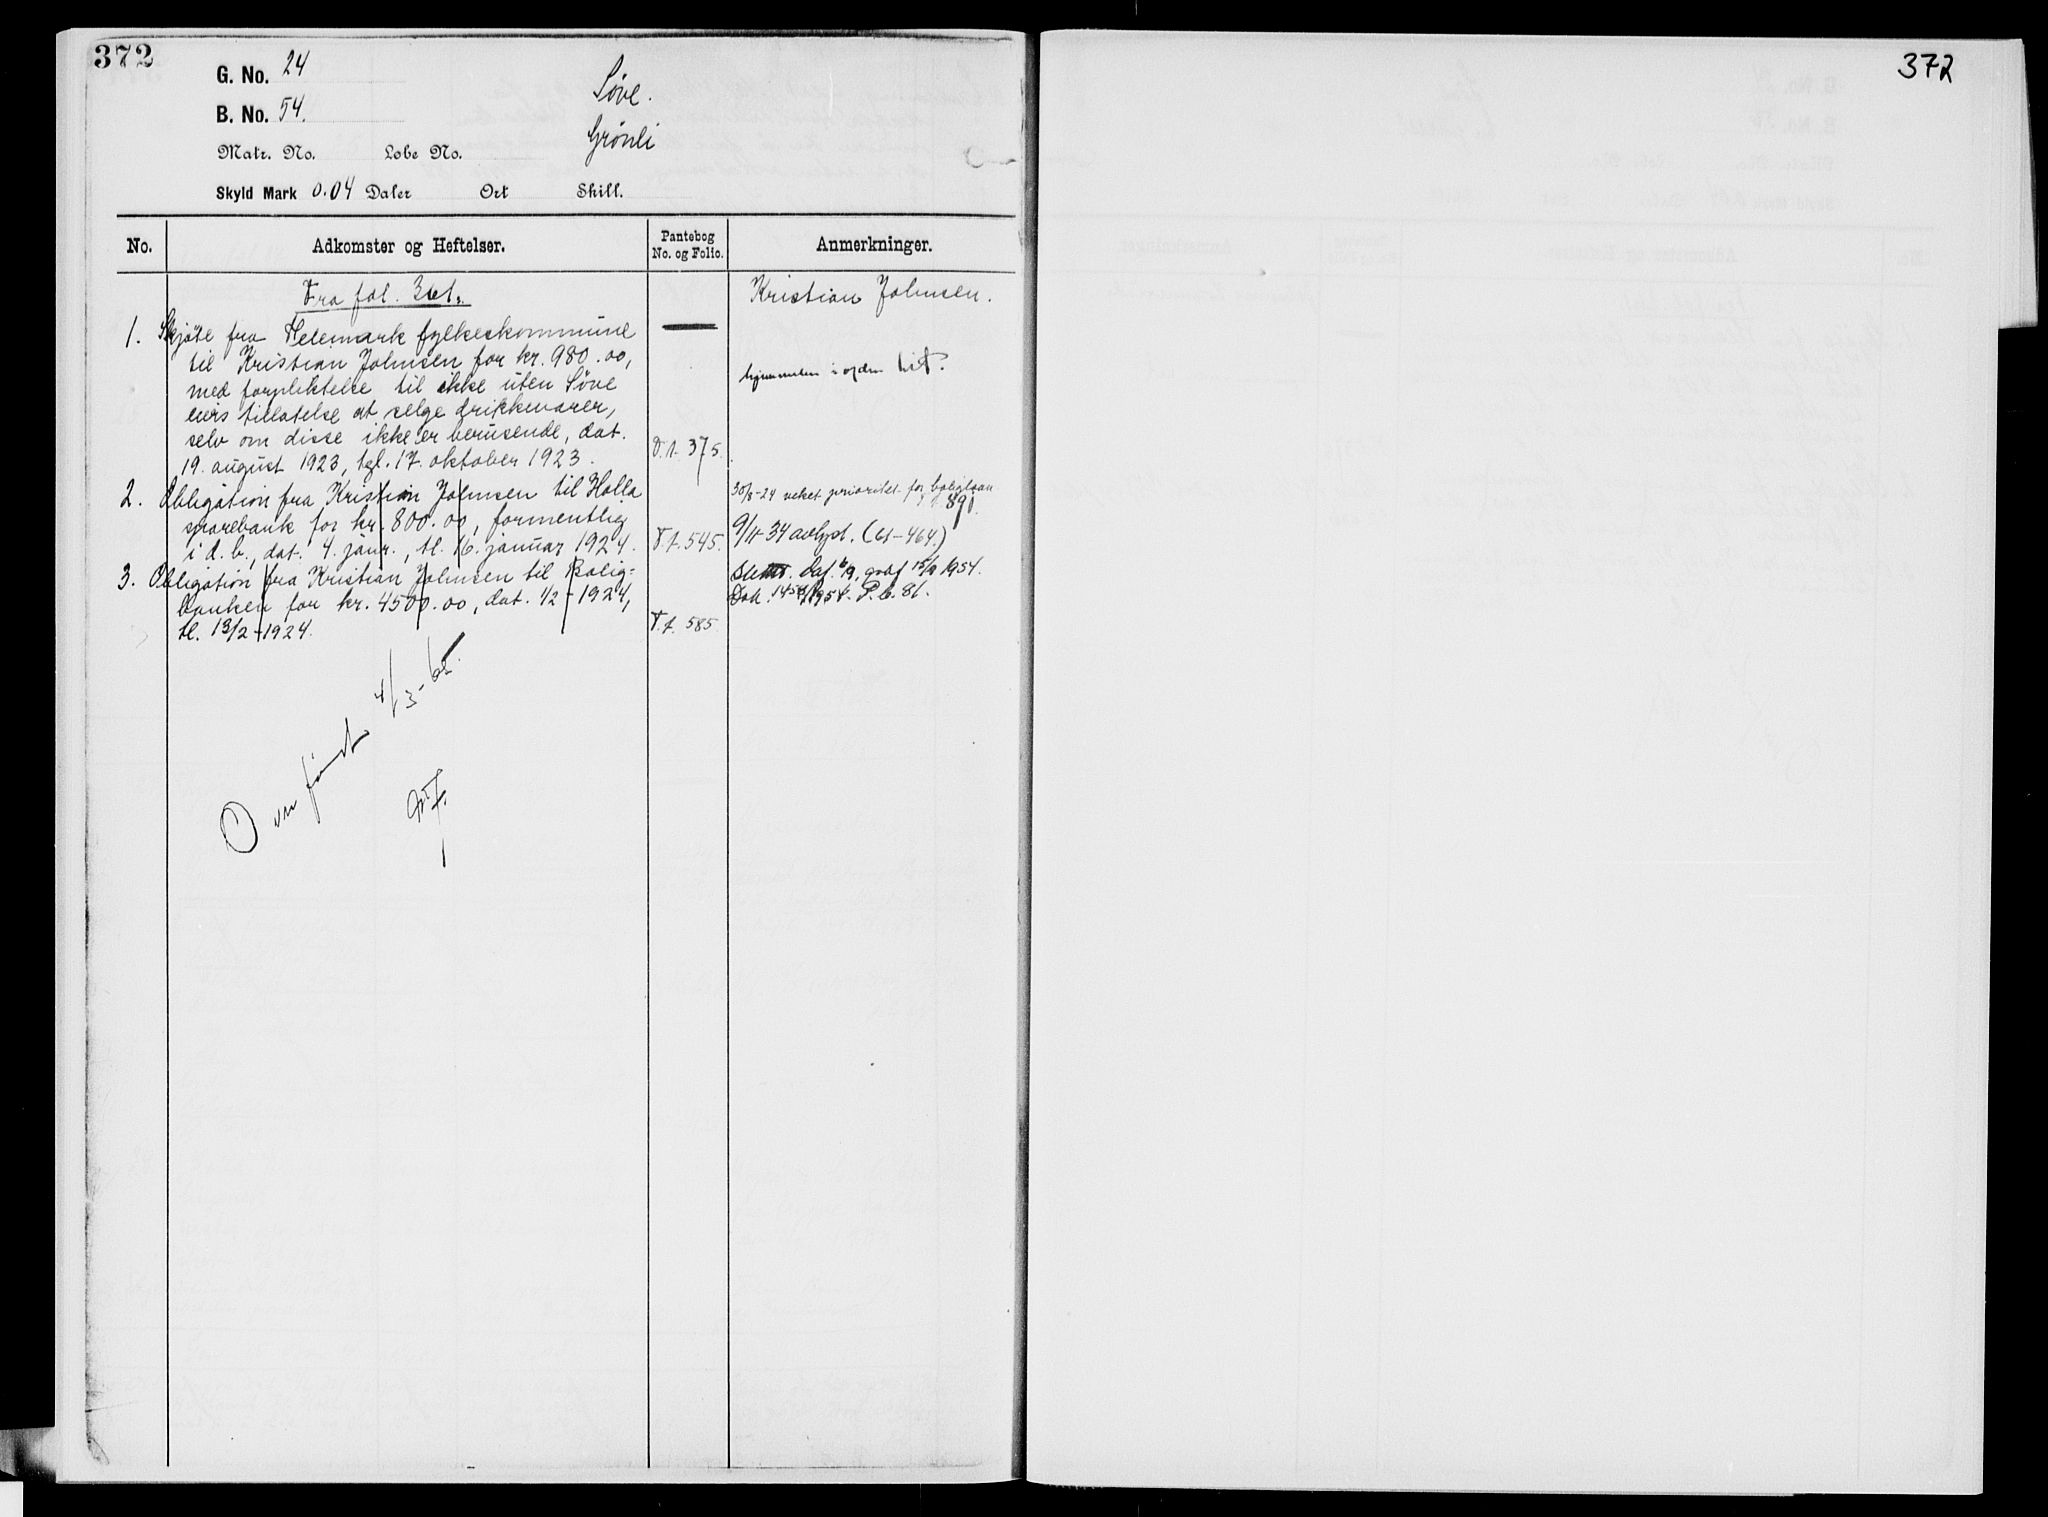 372
G. No. 24
B. No. 54.
Søve.
Grønli
Matr. No. Lobe No.
Skyld Mark 0.04 Daler Ort Skill.
No. Adkomster og Heftelser. Pantebog No. og Folio. Anmerkninger.
Fra fol. 361. Kristian Johnsen.
1. Skjøte fra Telemark fylkeskommune
til Kristian Johnsen for kr. 980.00,
med forpliktelse til ikke uten Søve
eiers tillatelse at selge drikkevarer,
selv om disse ikke er berusende, dat.
19. august 1923, tgl. 17. oktober 1923.
375.
hjemmelen i orden hit.
2. Obligation fra Kristian Johnsen til Holla
sparebank for kr. 800.00, formentlig
i d. b., dat. 4. janr., tl. 16. januar 1924.
545.
30/8-24 veket prioritet for boliglaan
890.
9/11-34 avlyst. (61-464.)
3. Obligation fra Kristian Johnsen til Bolig=
banken for kr. 4500.00, dat. 1/2-1924,
tl. 13/2-1924.
585.
1954.
Dok. 1954. P. b. 81.
Overført 4/3-
372